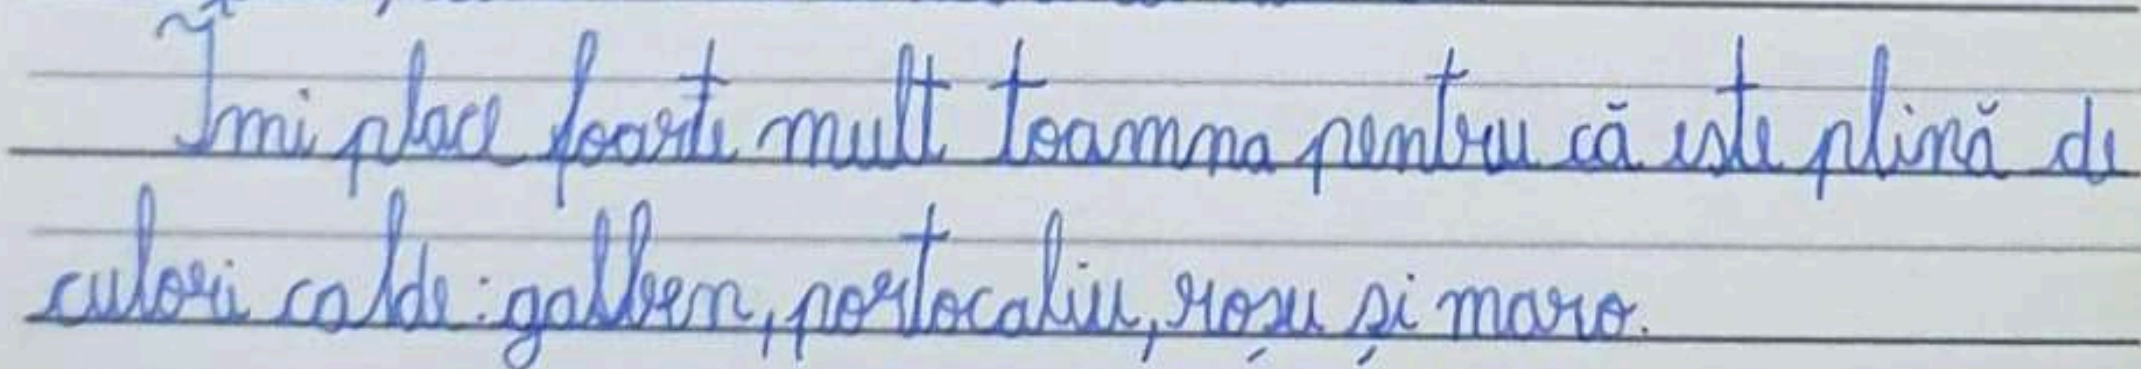 Îmi place foarte mult toamna pentru că este plină de
culori calde: galben, portocaliu, roșu și maro.